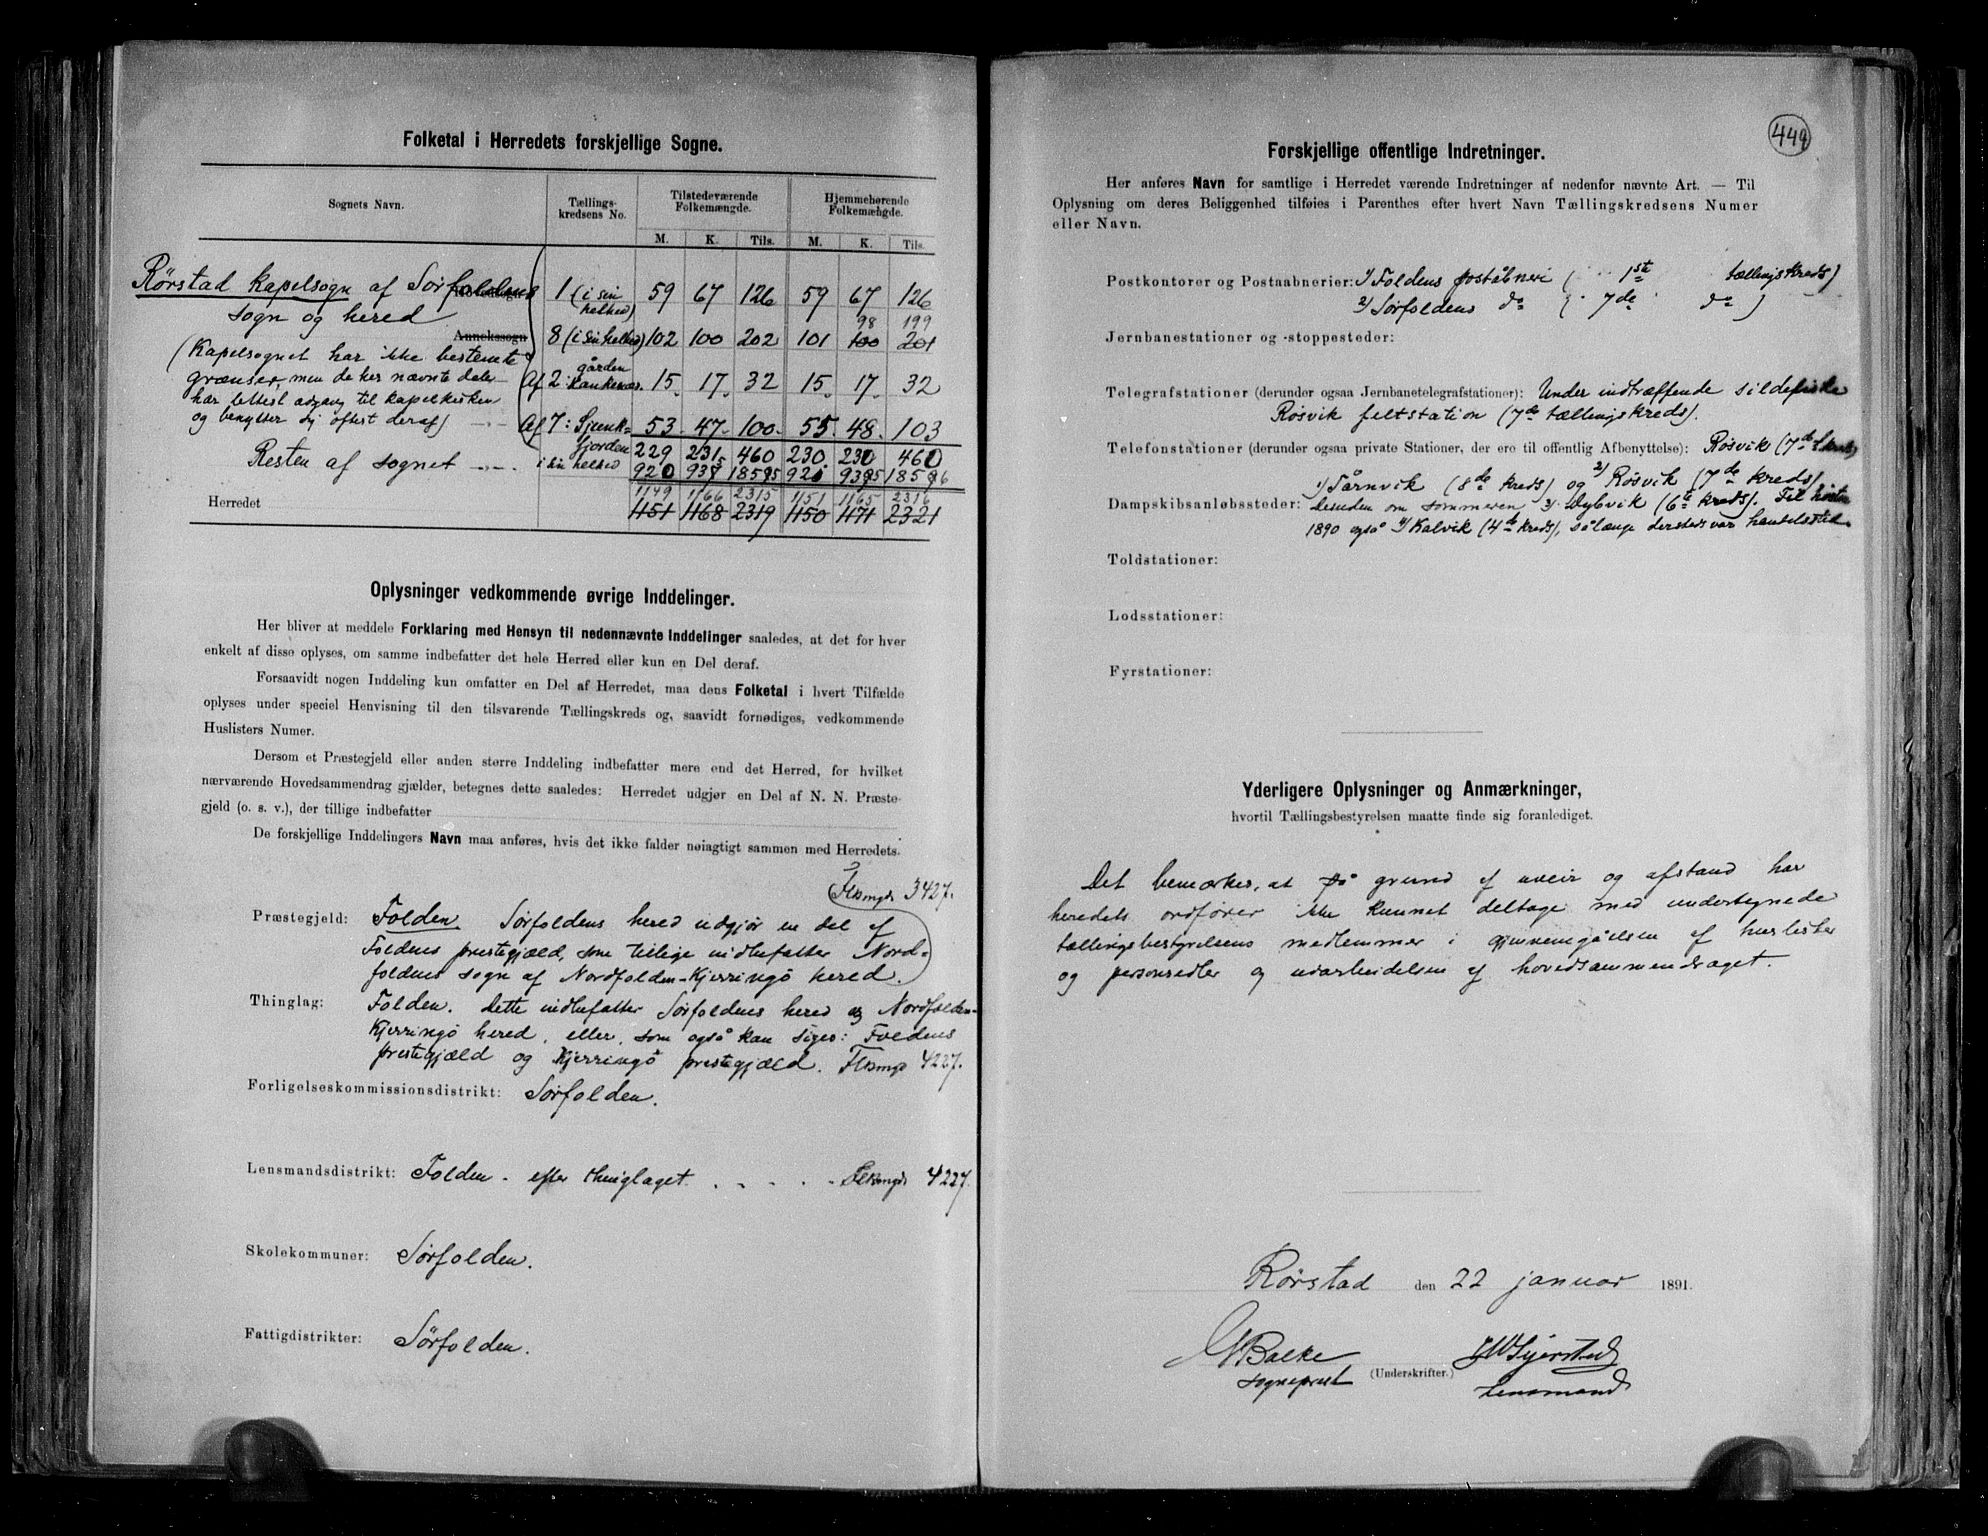 Folketal i Herredets forskjellige Sogne.
Sognets Navn. Tællings-kredsens No. Tilstedeværende Folkemængde. Hjemmehørende Folkemængde.
M. K. Tils. M. K. Tils.
Rørstad kapelsogn af Sørfoldens 1 (i sin helhed) 59 67 126 59 67 126
sogn og hered
98 199
Annekssogn 8 (i sin helhed) 102 100 202 101 100 201
(Kapelsognet har ikke bestemte
grænser, men de her nævnte dele Af 2: gården Kankenæs. 15 17 32 15 17 32
har lettest adgang til kapelkirken
og benytter sig oftest deraf) Af 7: Sjunkfjorden i sin helhed 53 47 100 55 48 103
229 231 460 230 230 460
Resten af sognet
1149 1166 2315 1151 1165 2316
Herredet 1151 1168 2319 1150 1171 2321
Oplysninger vedkommende øvrige Inddelinger.
Her bliver at meddele Forklaring med Hensyn til nedennævnte Inddelinger saaledes, at det for hver
enkelt af disse oplyses, om samme indbefatter det hele Herred eller kun en Del deraf.
Forsaavidt nogen Inddeling kun omfatter en Del af Herredet, maa dens Folketal i hvert Tilfælde
oplyses under speciel Henvisning til den tilsvarende Tællingskreds og, saavidt fornødiges, vedkommende
Huslisters Numer.
Dersom et Præstegjeld eller anden større Inddeling indbefatter mere end det Herred, for hvilket
nærværende Hovedsammendrag gjælder, betegnes dette saaledes: Herredet udgjør en Del af N. N. Præste-
gjeld (o. s. v.), der tillige indbefatter
De forskjellige Inddelingers Navn maa anføres, hvis det ikke falder nøiagtigt sammen med Herredets.
Flkmgd 3427.
Præstegjeld: Folden. Sørfoldens hered udgjør en del af
Foldens prestegjæld, som tillige indbefatter Nord-
foldens sogn af Nordfolden-Kjerringö hered.
Thinglag: Folden. Dette indbefatter Sørfoldens hered og Nordfolden-
Kjerringö hered, eller, som også kan siges: Foldens
prestegjæld og Kjerringö prestegjæld. Flkmgd 4227.
Forligelseskommissionsdistrikt: Sørfolden.
Lensmandsdistrikt: Folden. efter thinglaget. . . . . Flkmgd 4227.
Skolekommuner: Sørfolden.
Fattigdistrikter: Sørfolden.
449
Forskjellige offentlige Indretninger.
Her anføres Navn for samtlige i Herredet værende Indretninger af nedenfor nævnte Art. — Til
Oplysning om deres Beliggenhed tilføies i Parenthes efter hvert Navn Tællingskredsens Numer
eller Navn.
Postkontorer og Postaabnerier: 1/ Foldens poståbneri ( 1ste tællingskreds)
2/ Sørfoldens do ( 7de do )
Jernbanestationer og -stoppesteder:
Telegrafstationer (derunder ogsaa Jernbanetelegrafstationer): Under indtræffende sildefiske
Røsvik feltstation (7de tællingskreds).
Telefonstationer (derunder ogsaa private Stationer, der ere til offentlig Afbenyttelse): Røsvik (7de kreds)
1/ Tårnvik (8de kreds) og 2/ Røsvik (7de kreds)
Dampskibsanløbssteder: desuden om sommeren 3/ Dybvik (6te kreds). Til høsten
1890 også 4/ Kalvik (4de kreds), sålænge dersteds var handelssted.
Toldstationer:
Lodsstationer:
Fyrstationer:
Yderligere Oplysninger og Anmærkninger,
hvortil Tællingsbestyrelsen maatte finde sig foranlediget.
Det bemærkes, at på grund af uveir og afstand har
heredets ordfører ikke kunnet deltage med undertegnede
tællingsbestyrelsens medlemmer i gjennemgåelsen af huslister
og personsedler og udarbeidelsen af hovedsammendraget.
Rørstad den 22 januar 1891.
Balke
sogneprest (Underskrifter.)
lensmand